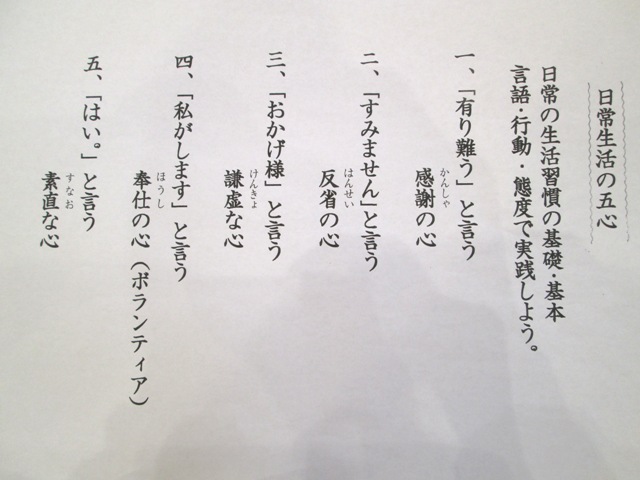 日常生活の五心
日常の生活習慣の基礎・基本
言語・行動・態度で実践しよう。
一、「有り難う」と言う
かんしゃ
感謝の心
二、「すみません」と言う
はんせい
反省の心
三、「おかげ様」と言う
けんきょ
謙虚な心
四、「私がします」と言う
ほうし
奉仕の心（ボランティア）
五、「はい。」と言う
すなお
素直な心